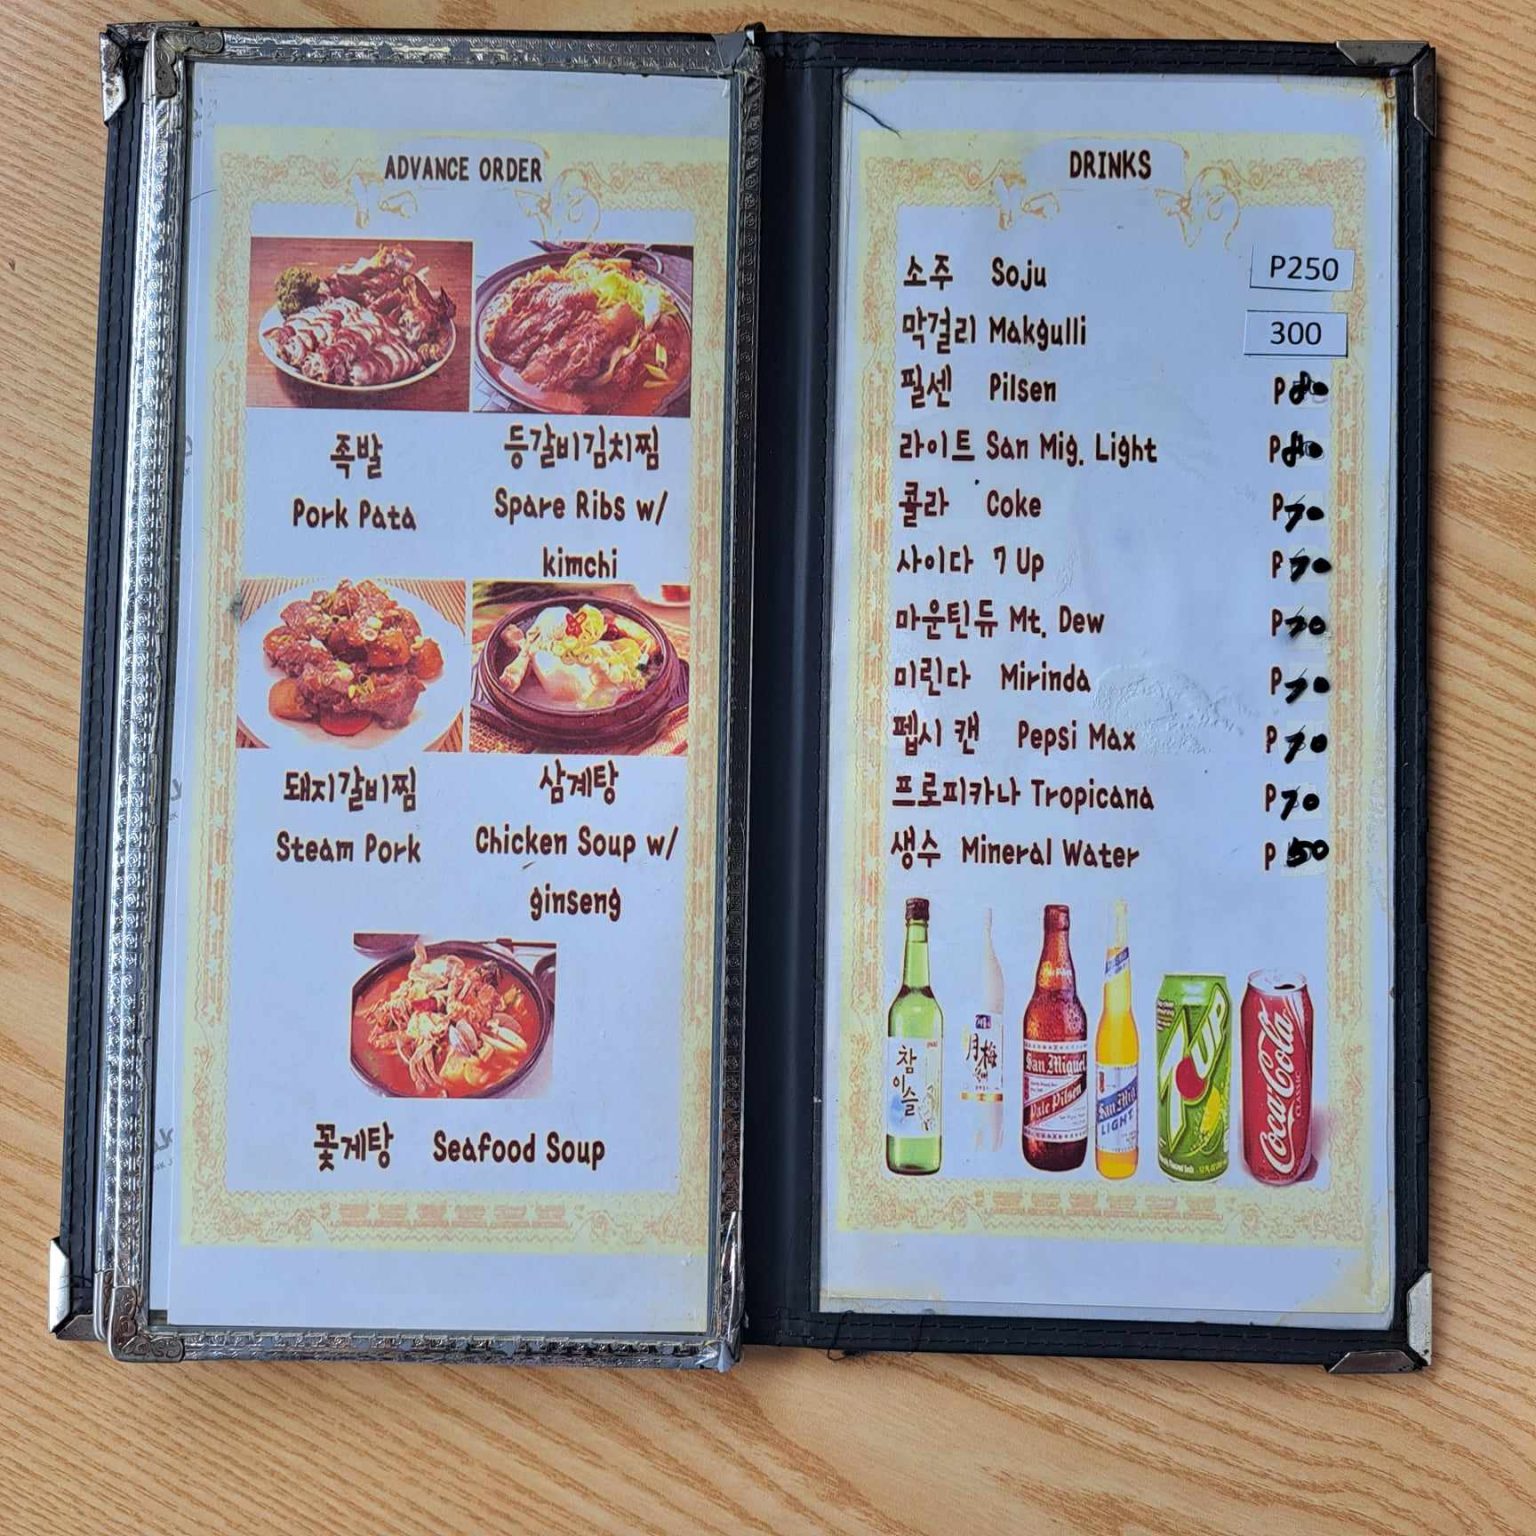 ADVANCE ORDER
족발
Pork Pata
등갈비김치찜
Spare Ribs w/
kimchi
돼지갈비찜
Steam Pork
삼계탕
Chicken Soup w/
ginseng
꽃게탕 Seafood Soup
DRINKS
소주 Soju P250
막걸리 Makgulli 300
필센 Pilsen P80
라이트 San Mig. Light P80
콜라 Coke P70
사이다 7 Up P70
마운틴듀 Mt. Dew P70
미린다 Mirinda P70
펩시 캔 Pepsi Max P70
프로피카나 Tropicana P70
생수 Mineral Water P50
참이슬
月梅
San Miguel
Pale Pilsen
San Mig
LIGHT
7UP
Coca-Cola
CLASSIC